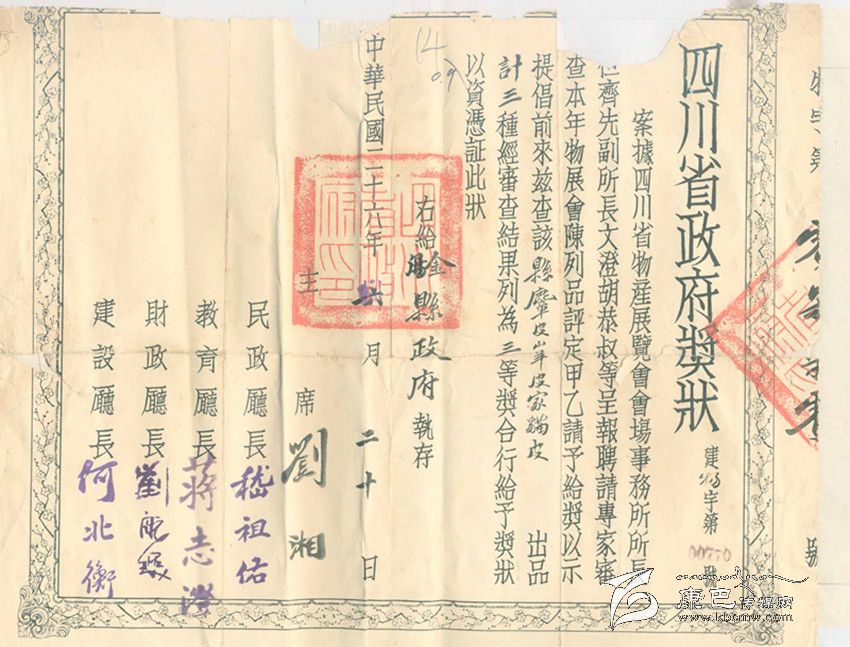 四川省政府奬狀
建物字第00770號
案據四川省物產展覽會會場事務所所長
仁齊先副所長文澄胡恭叔等呈報聘請專家審
查本年物展會陳列品評定甲乙請予給奬以示
提倡前來兹查該縣麞皮羊皮家貓皮出品
計三種經審查結果列為三等奬合行給予奬狀
以資憑証此狀
右給
縣政府執存
中華民國二十六年
月二十日
主席劉湘
民政廳長嵇祖佑
教育廳長蔣志澄
財政廳長劉航琛
建設廳長何北衡
字第
號
14
康巴傳媒網
www.kbcmw.com